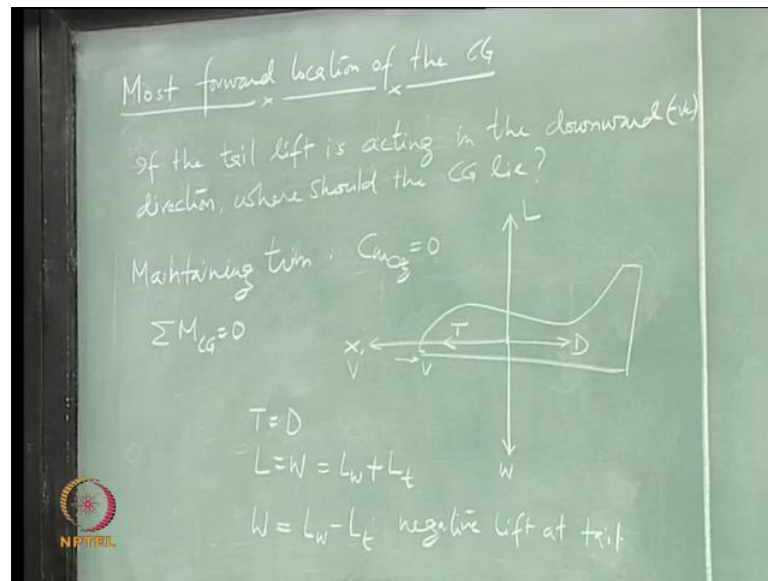 Most forward location of the CG
If the tail lift is acting in the downward (-ve)
direction, where should the CG lie?
L
Maintaining trim : Cmcg=0
ΣMCG=0
X, T D
V V
T=D
W
L=W = Lw+Lt
W = Lw-Lt negative lift at tail
NPTEL